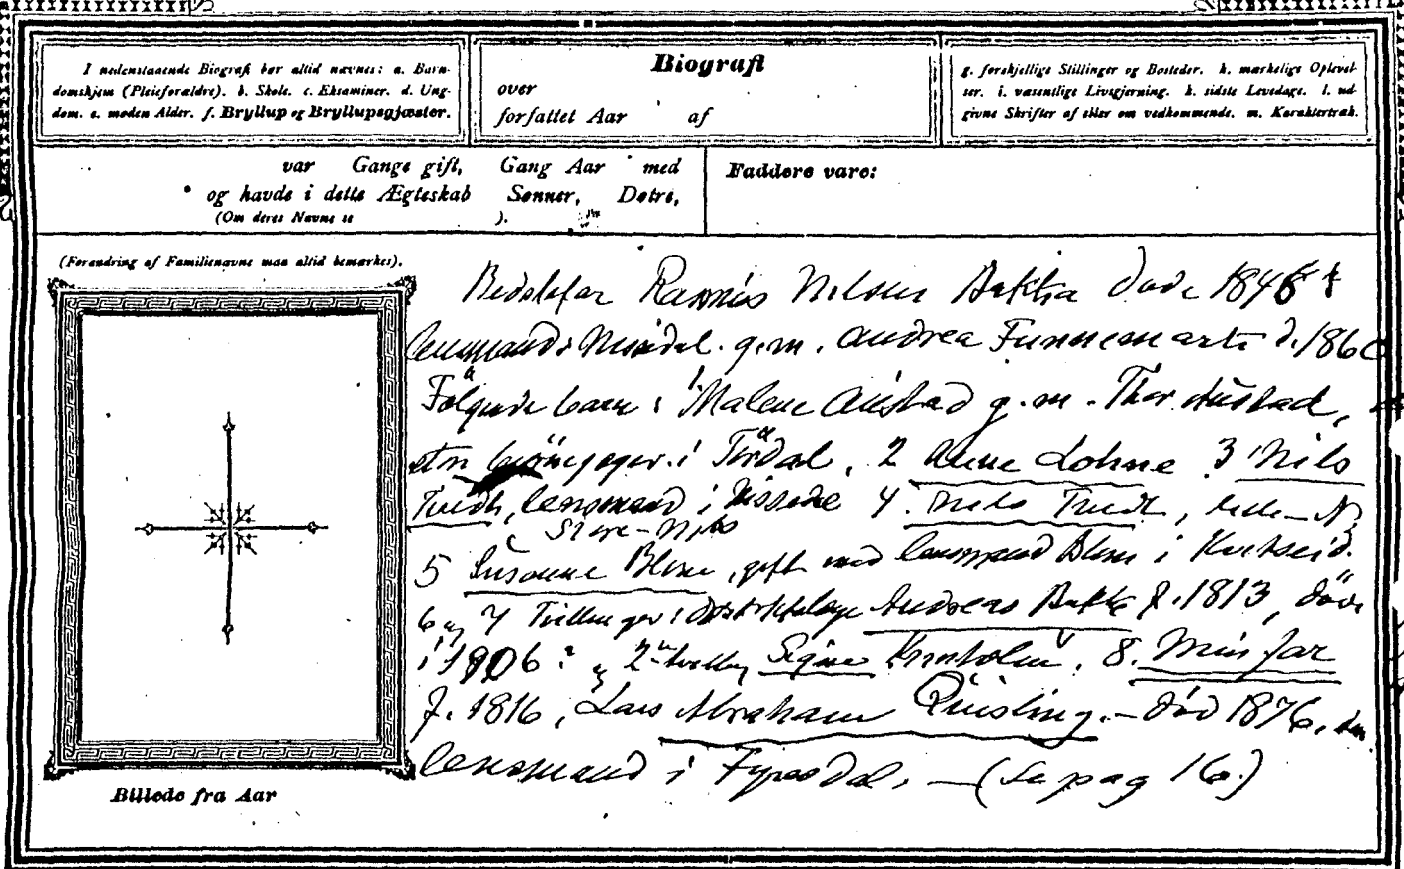 I nedenstaaende Biografi bør altid nævnes: a. Barn-
domshjem (Pleieforældre). b. Skole. c. Eksaminer. d. Ung-
dom. e. moden Alder. f. Bryllup og Bryllupsgjæster.
Biografi
over
forfattet Aar af
g. forskjellige Stillinger og Bosteder. h. mærkelige Oplevel-
ser. i. væsentlige Livsgjerning. k. sidste Levedage. l. ud-
givne Skrifter af eller om vedkommende. m. Karaktertræk.
var Gange gift, Gang Aar med
og havde i dette Ægteskab Sønner, Døtre,
(Om deres Navne se ).
Faddere vare:
(Forandring af Familienavne maa altid bemærkes).
Bedstefar Rasmus Nilsen Bakka døde 1846
lensmand i g.m. Andrea d. 1860
Følgende barn: 1. Malene Austad g.m. Thor Austad,
i Tørdal, 2 Anne Lohne 3 Nils
Tvedt, lensmand i Nissedal 4. Nils Tvedt, lille-N.
Store-Nils
5 Susanne Blom, gift med lensmand Blom i Kviteseid.
6 og 7 Tvillinger: Andreas Bakka f. 1813, døde
i 1906 og Signe 8. Min far
f. 1816, Lars Abraham Quisling. – død 1876,
lensmand i Fyresdal. — (Se pag 16.)
Billede fra Aar